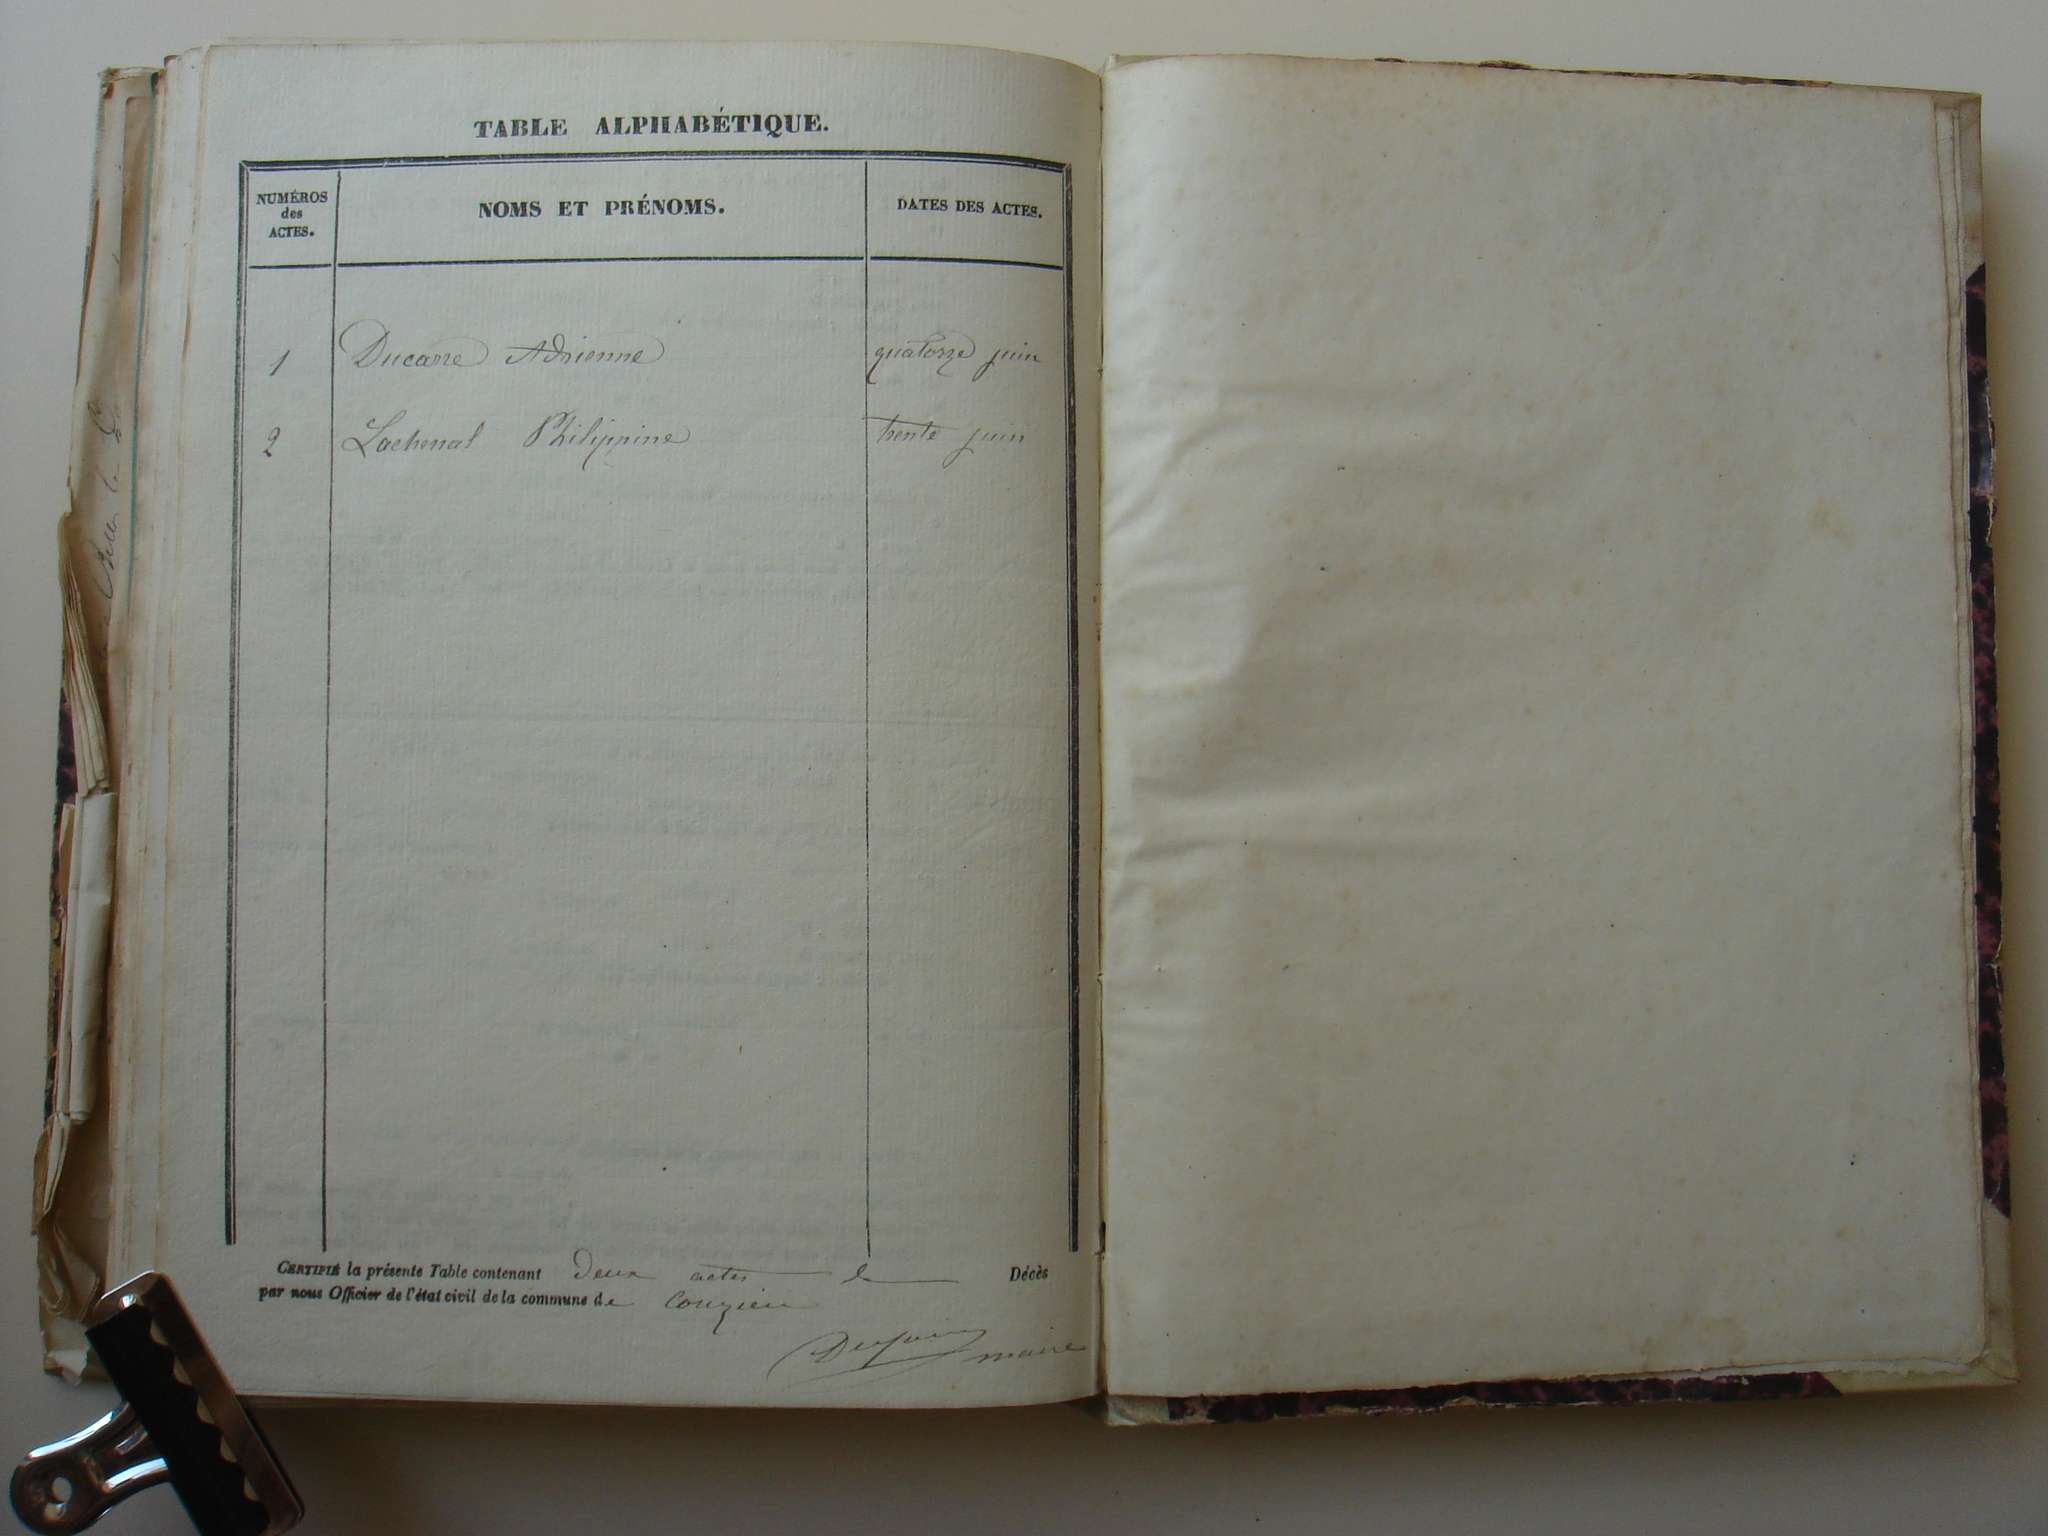 TABLE ALPHABÉTIQUE.
NUMÉROS des ACTES.
NOMS ET PRÉNOMS.
DATES DES ACTES.
1 Ducarre Adrienne quatorze juin
2 Lachenal Philippine trente juin
CERTIFIÉ la présente Table contenant deux actes de Décès
par nous Officier de l'état civil de la commune de Conzieu
maire